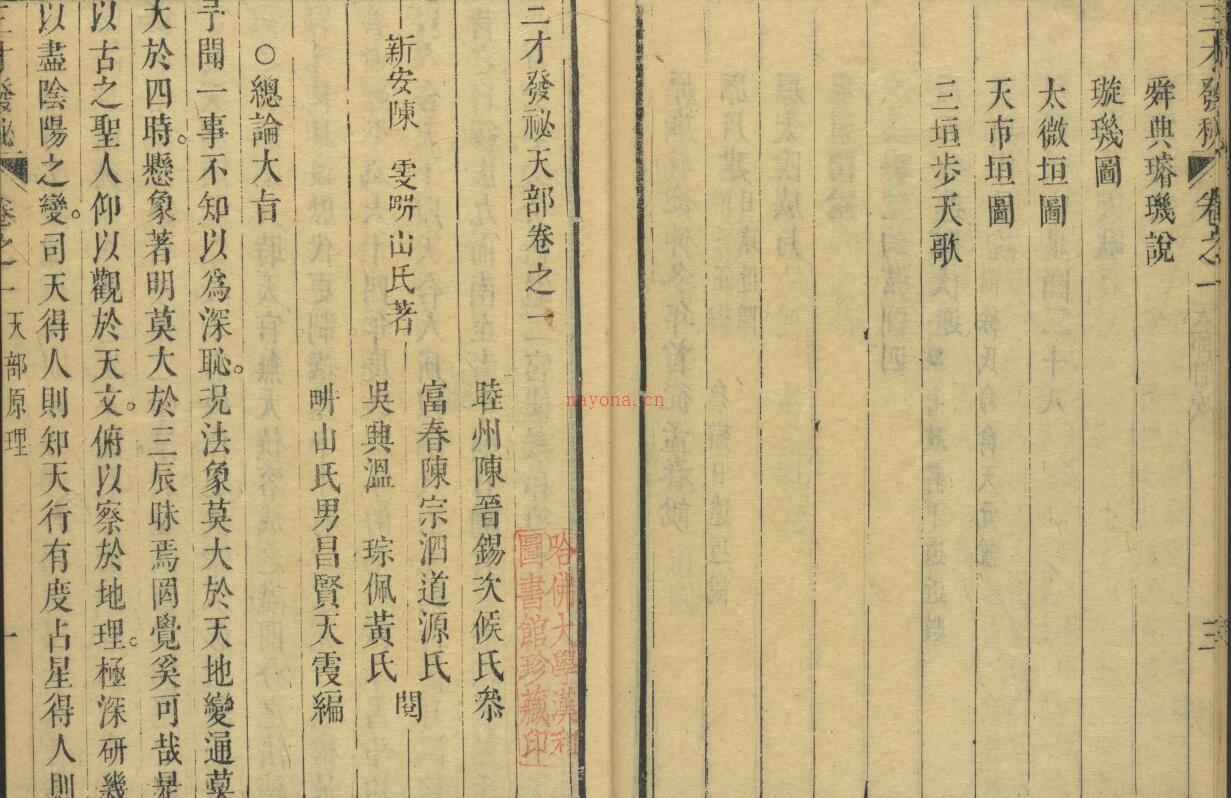 三才發秘 卷之一 三
舜典璿璣說
璇璣圖
太微垣圖
天市垣圖
三垣步天歌
三才發祕天部卷之一
哈佛大學漢和
圖書館珍藏印
睦州陳晉錫次候氏叅
新安陳 雯畊山氏著
富春陳宗泗道源氏
吳興溫 琮佩黃氏
閱
畊山氏男昌賢天霞編
○總論大旨
予聞一事不知以爲深恥。况法象莫大於天地變通莫
大於四時。懸象著明莫大於三辰昧焉罔覺奚可哉是
以古之聖人仰以觀於天文。俯以察於地理。極深研幾
以盡陰陽之變。司天得人則知天行有度占星得人則
三才發秘 卷之一 天部原理 一
nayona.cn